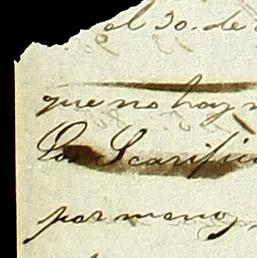 el 30. de
que no hay
Las Scarifi
por menos